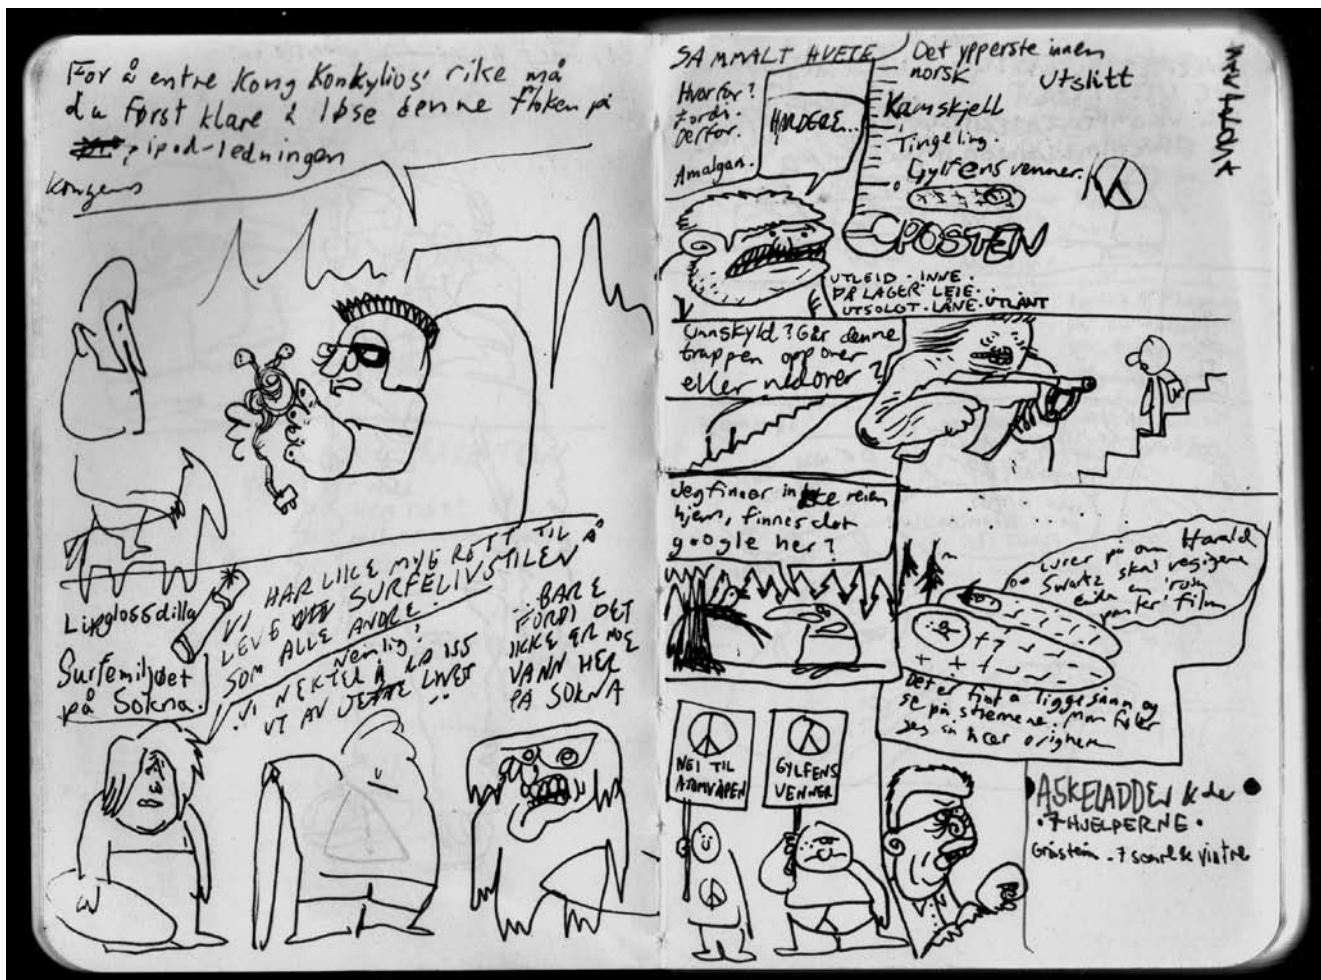 For å entre Kong Konkylios' rike må
du først klare å løse denne floken på
ipod-ledningen
Kongens
Lipglossdilla
Surfemiljøet
på Sokna.
VI HAR LIKE MYE RETT TIL Å
LEVE SURFELIVSTILEN
SOM ALLE ANDRE.
Nemlig!
VI NEKTER Å
UT AV LIVET
BARE
FORDI DET
IKKE ER NOE
VANN HER
PÅ SOKNA
SAMMALT HVETE
Hvorfor?
Fordi.
Derfor.
Amalgan.
HARDERE...
Det ypperste innen
norsk
Utslitt
Kamskjell
Tingeling
Gylfens venner.
POSTEN
UTLEID · INNE ·
PÅ LAGER LEIE ·
UTSOLGT · LÅNE · UTLÅNT
Unnskyld? Går denne
trappen oppover
eller nedover?
Jeg finner ikke veien
hjem, finnes det
google her?
Lurer på om Harald
Swartz skal regissere
enda en rosa
panter film
Det er fint å ligge sånn og
se på stjernene. Man føler
seg så
NEI TIL
ATOMVÅPEN
GYLFENS
VENNER
ASKELADDEN & de
· 7 HJELPERNE ·
Gråstein - 7 somre & vintre